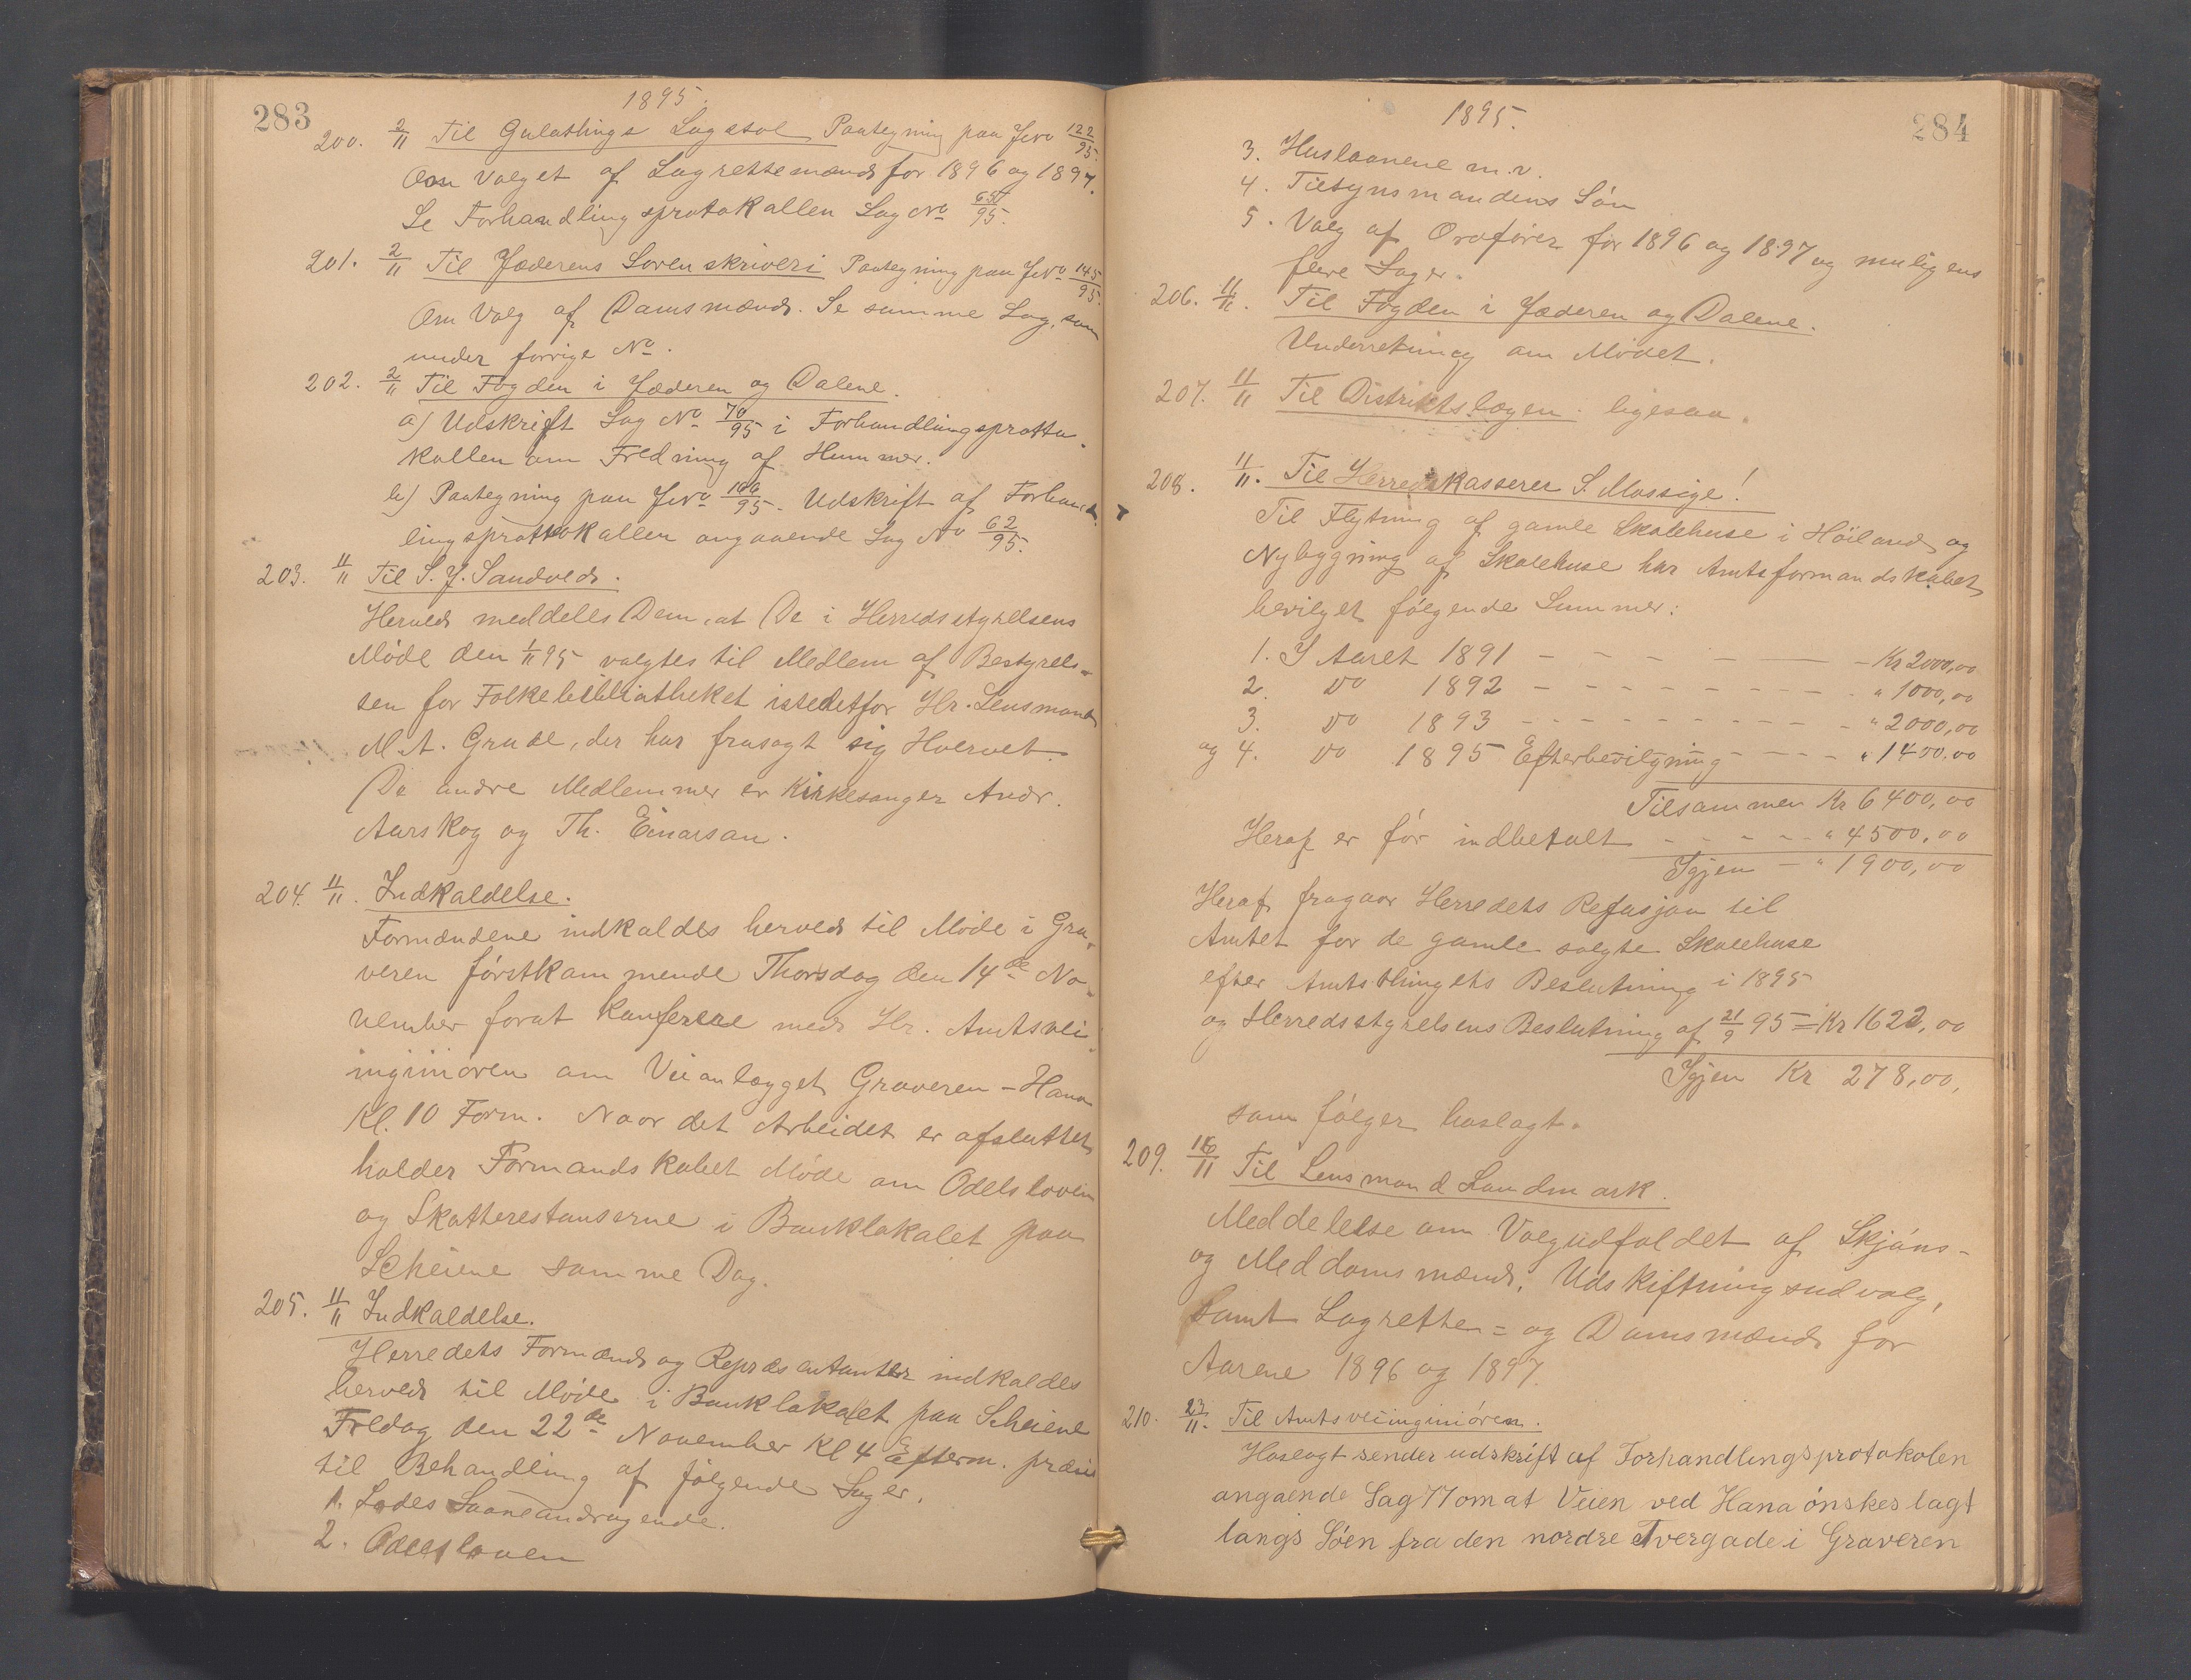 283
1895.
200. 2/11 Til Gulathings Lagstol Paategning paa Jrno 122/95.
Om Valget af Lagrettemænd for 1896 og 1897.
Se Forhandlingsprotokallen Sag No 65/95.
201. 2/11 Til Jæderens Sorenskriveri Paategning paa Jrno 145/95.
Om Valg af Domsmænd. Se samme Sag, som
under forrige No.
202. 2/11 Til Fogden i Jæderen og Dalene.
a) Udskrift Sag No 70/95 i Forhandlingsprotto-
kollen om Fredning af Hummer.
b) Paategning paa Jrno 166/95. Udskrift af Forhand-
lingsprottokallen angaaende Sag No 62/95.
203. 11/11 Til S. J. Sandved.
Herved meddeles Dem, at De i Herredsstyrelsens
Møde den 1/11 95 valgtes til Medlem af Bestyrel-
sen for Folkebibliotheket istedetfor Hr. Lensmand
M. A. Grude, der har frasagt sig Hvervet.
De andre Medlemmer er Kirkesanger Andr.
Aarskog og Th. Einarsan.
204. 11/11. Indkaldelse.
Formændene indkaldes herved til Møde i Gra-
veren førstkommende Thorsdag den 14de No-
vember forat Konferere med Hr. Amtsvei-
inginiøren om Veianlægget Graveren - Hana
Kl. 10 Form. Naar det Arbeidet er afsluttet
holder Formandskabet Møde om Odelsloven
og Skatterestanserne i Banklokalet paa
Scheiene samme Dag.
205. 11/11 Indkaldelse.
Herredets Formænd og Repræsentanter indkaldes
herved til Møde i Banklokalet paa Scheiene
Fredag den 22de November Kl 4 Efterm. præcis
til Behandling af følgende Sager.
1. Lodes Laaneandragende.
2. Odelsloven
1895.
284
3. Huslaanene m. v.
4. Tilsynsmandens Løn
5. Valg af Ordfører for 1896 og 1897 og muligens
flere Sager.
206. 11/11. Til Fogden i Jæderen og Dalene.
Underretning om Mødet.
207. 11/11 Til Distriktslægen. ligesaa.
208. 11/11. Til Herredskasserer S. Mossige!
Til Flytning af gamle Skolehuse i Høiland og
Nybygning af Skolehuse har Amtsformandskabet
bevilget følgende Summer:
1. I Aaret 1891 - - - - - - - Kr 2000,00
2. Do 1892 - - - - - - - - " 1000,00
3. Do 1893 - - - - - - - - " 2000,00
og 4. Do 1895 Efterbevilgning - - - - " 1400.00
Tilsammen Kr 6400,00
Heraf er før indbetalt - - - - - " 4500,00
Igjen - " 1900,00
Heraf fragaar Herredets Refusjon til
Amtet for de gamle solgte Skolehuse
efter Amtsthingets Beslutning i 1895
og Herredsstyrelsens Beslutning af 21/9 95 = Kr 1622,00
Igjen Kr 278,00,
som følger hoslagt.
209. 16/11 Til Lensmand Landmark.
Meddelelse om Valgudfaldet af Skjøns-
og Meddomsmænd. Udskiftningsudvalg,
samt Lagrette= og Domsmænd for
Aarene 1896 og 1897.
210. 23/11. Til Amtsveiinginiøren.
Hoslagt sender udskrift af Forhandlingsprotokolen
angaende Sag 77 om at Veien ved Hana ønskes lagt
langs Søen fra den nordre Tvergade i Graveren